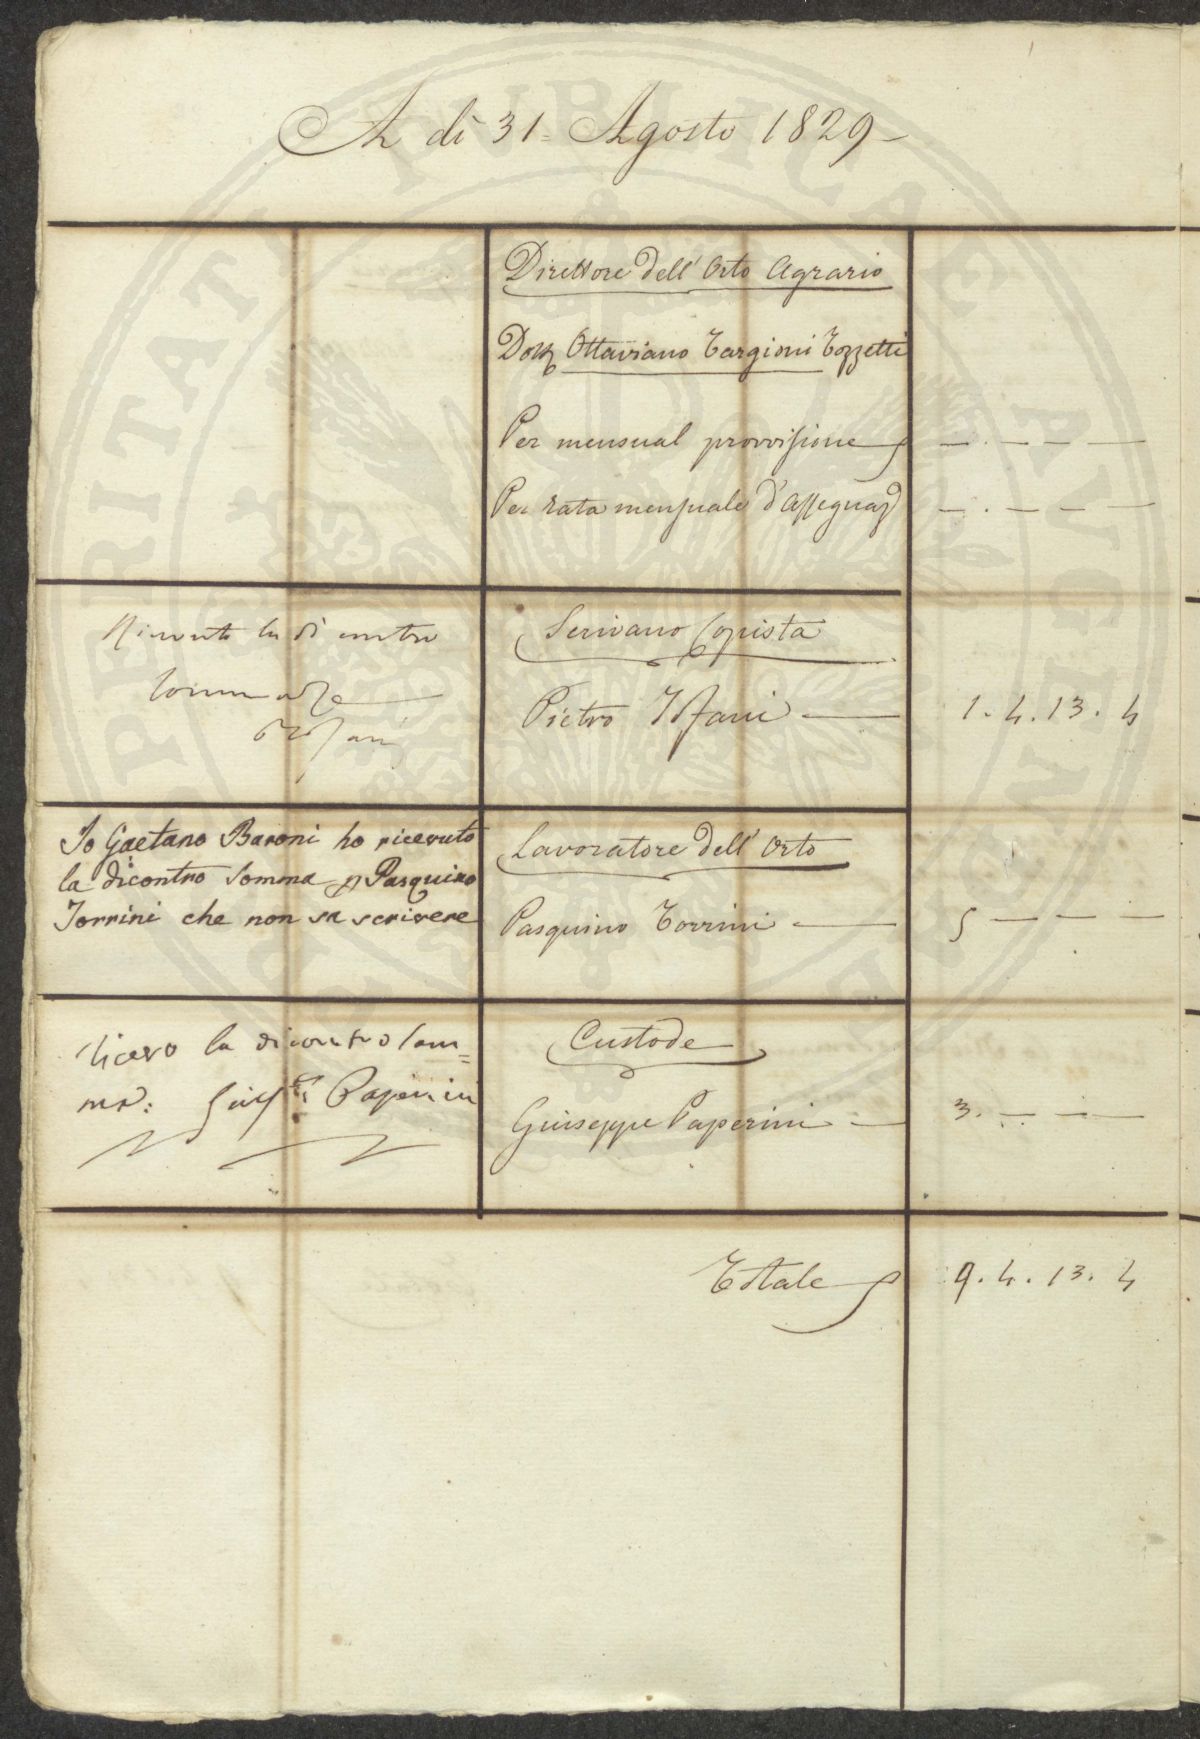 A dì 31= Agosto 1829
Direttore dell' Orto Agrario
Dott. Ottaviano Targioni Tozzetti
Per mensual provvisione
Per rata mensuale d'Assegnaz
Ricevuto la di contro
Somma
Scrivano Copista
Pietro 1.4.13.4
Io Gaetano Baroni ho ricevuto
la dicontro Somma p Pasquino
Torrini che non sa scrivere
Lavoratore dell' Orto
Pasquino Torrini 5
ricevo la dicontro som=
ma: Gius.e Paperini
Custode
Giuseppe Paperini 3.
Totale 9.4.13.4
PUBLICAE